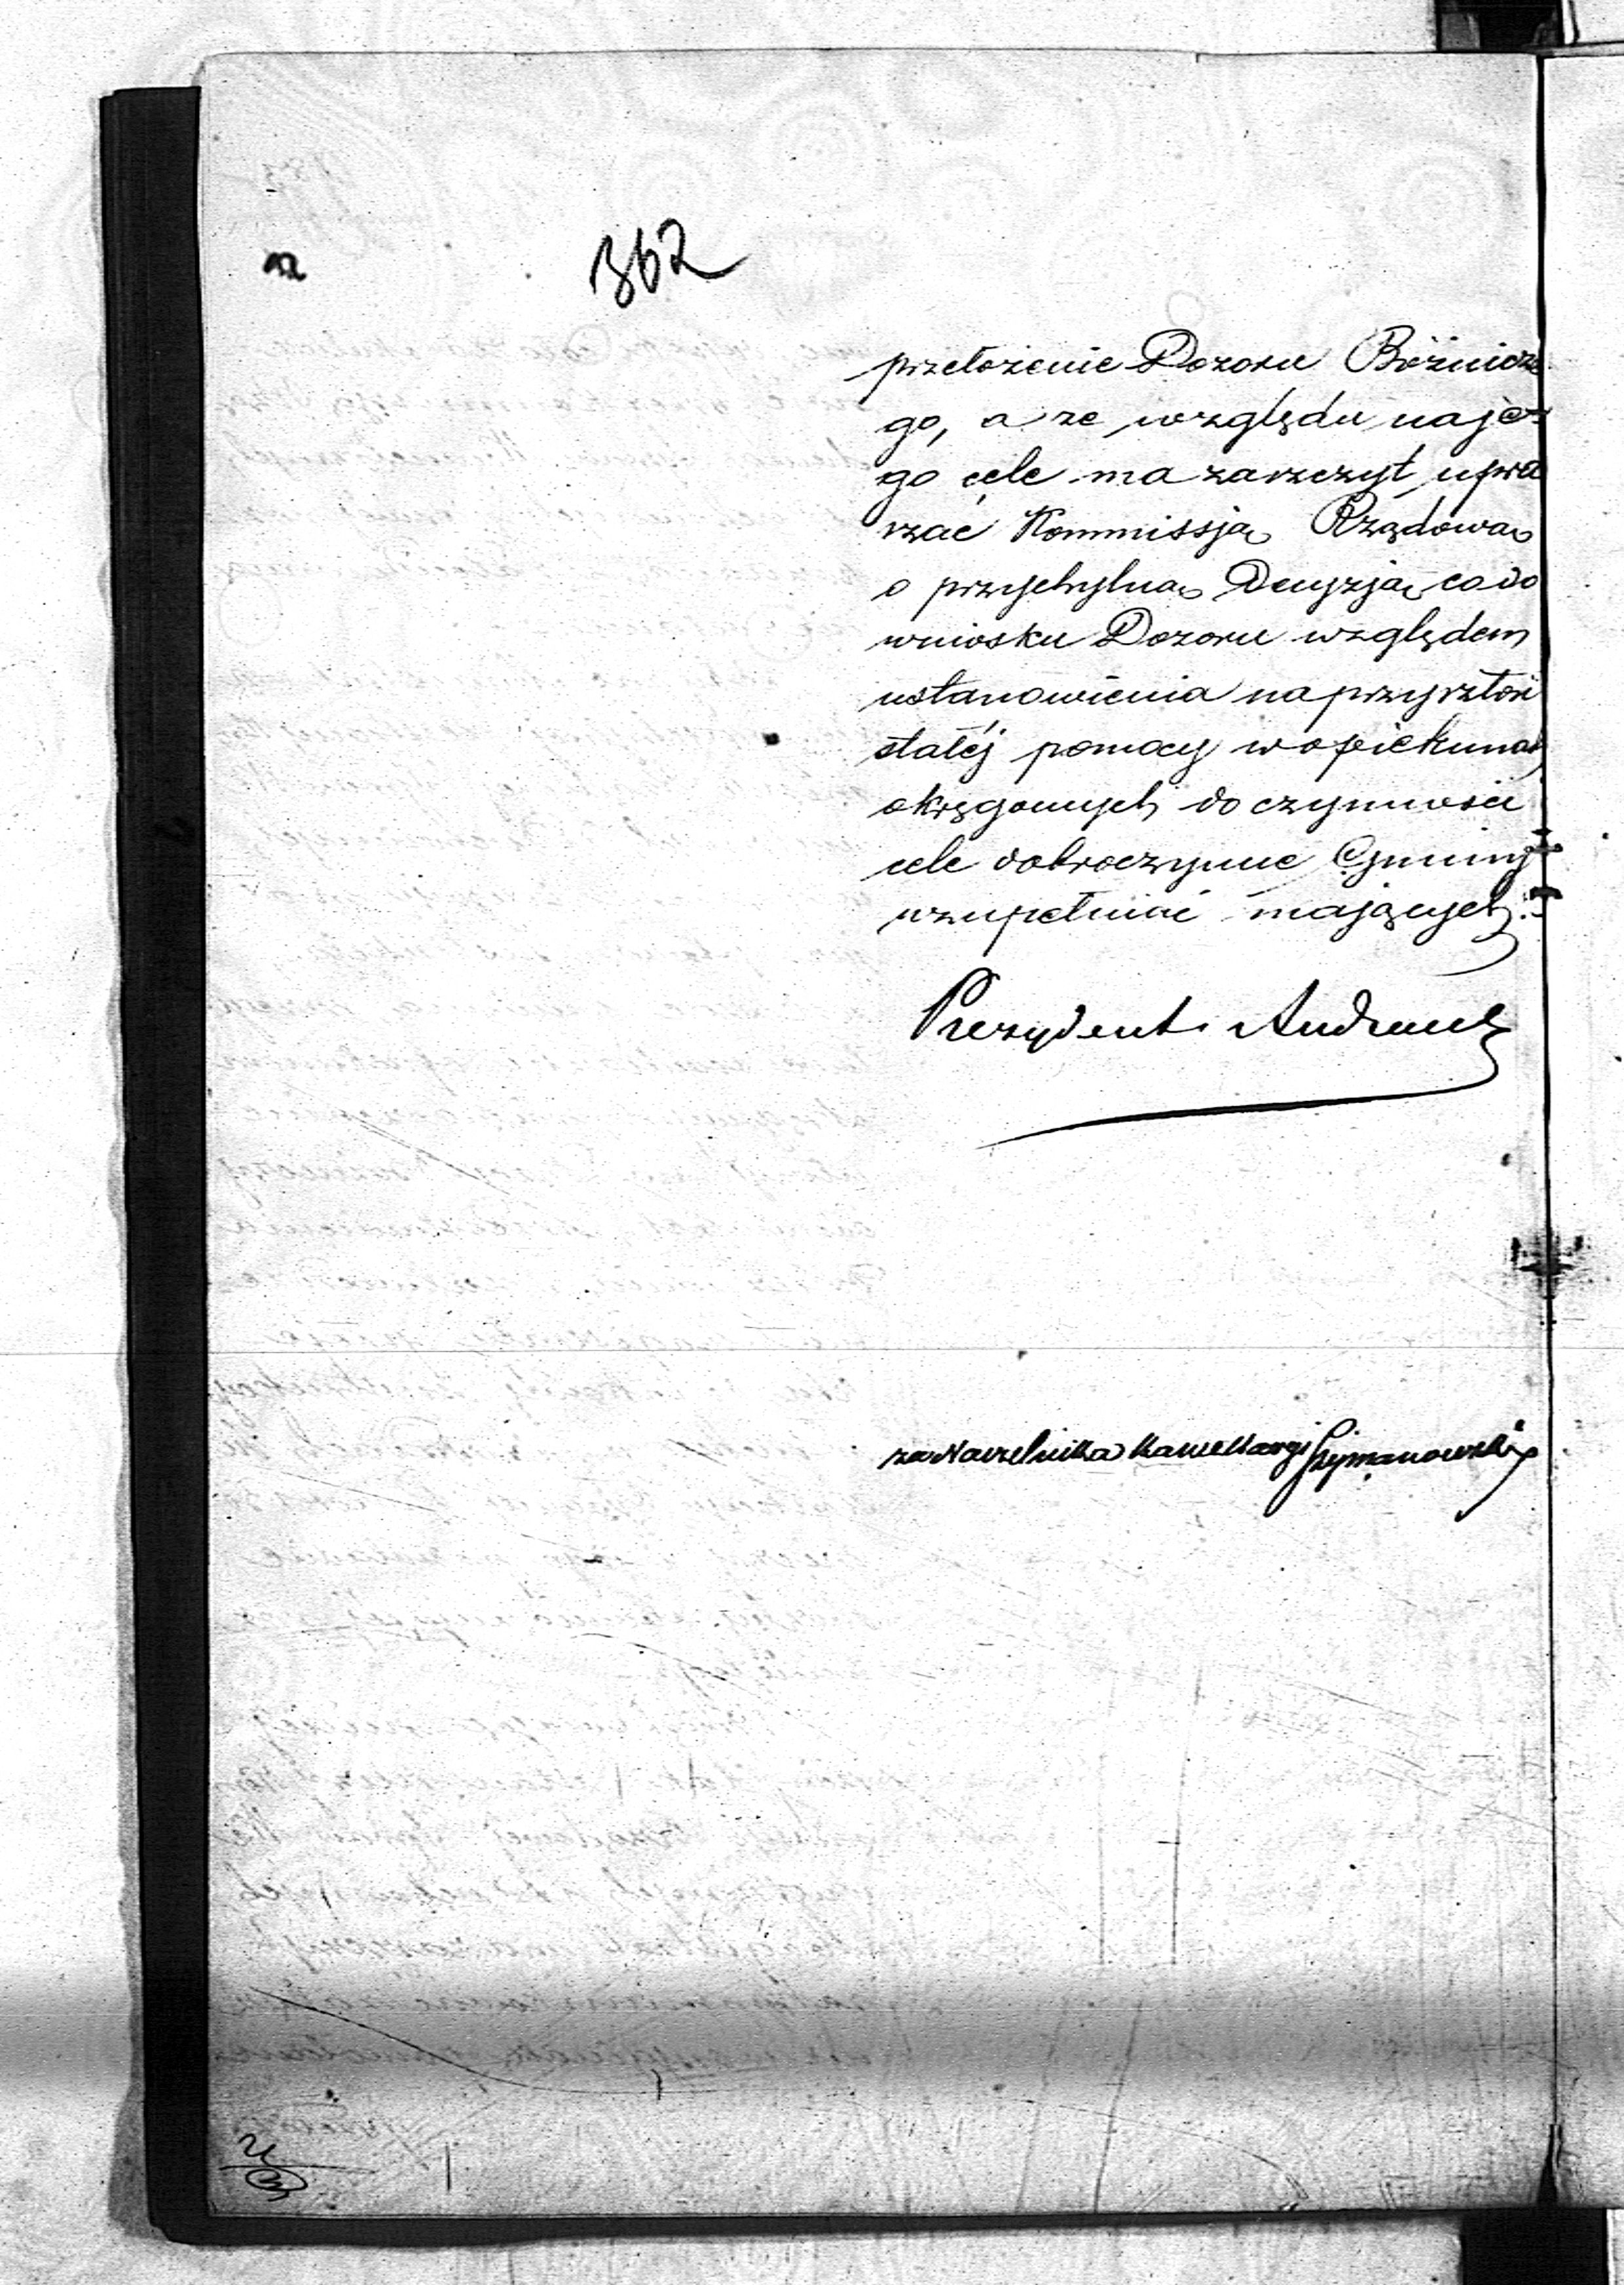 362
przełożenie Dozoru Bóżnicze
go, a ze względu na je-
go cele ma zaszczyt upra
szać Kommissją Rządową
o przychylną Decyzją co do
wniosku Dozoru względem
ustanowienia na przyszłość
stałéj pomocy w opiekunach
okręgowych do czynności
cele dobroczynne Gminy
uzupełniać mających.
Prezydent Andrault
za Naczelnika Kancellaryi Szymanowski